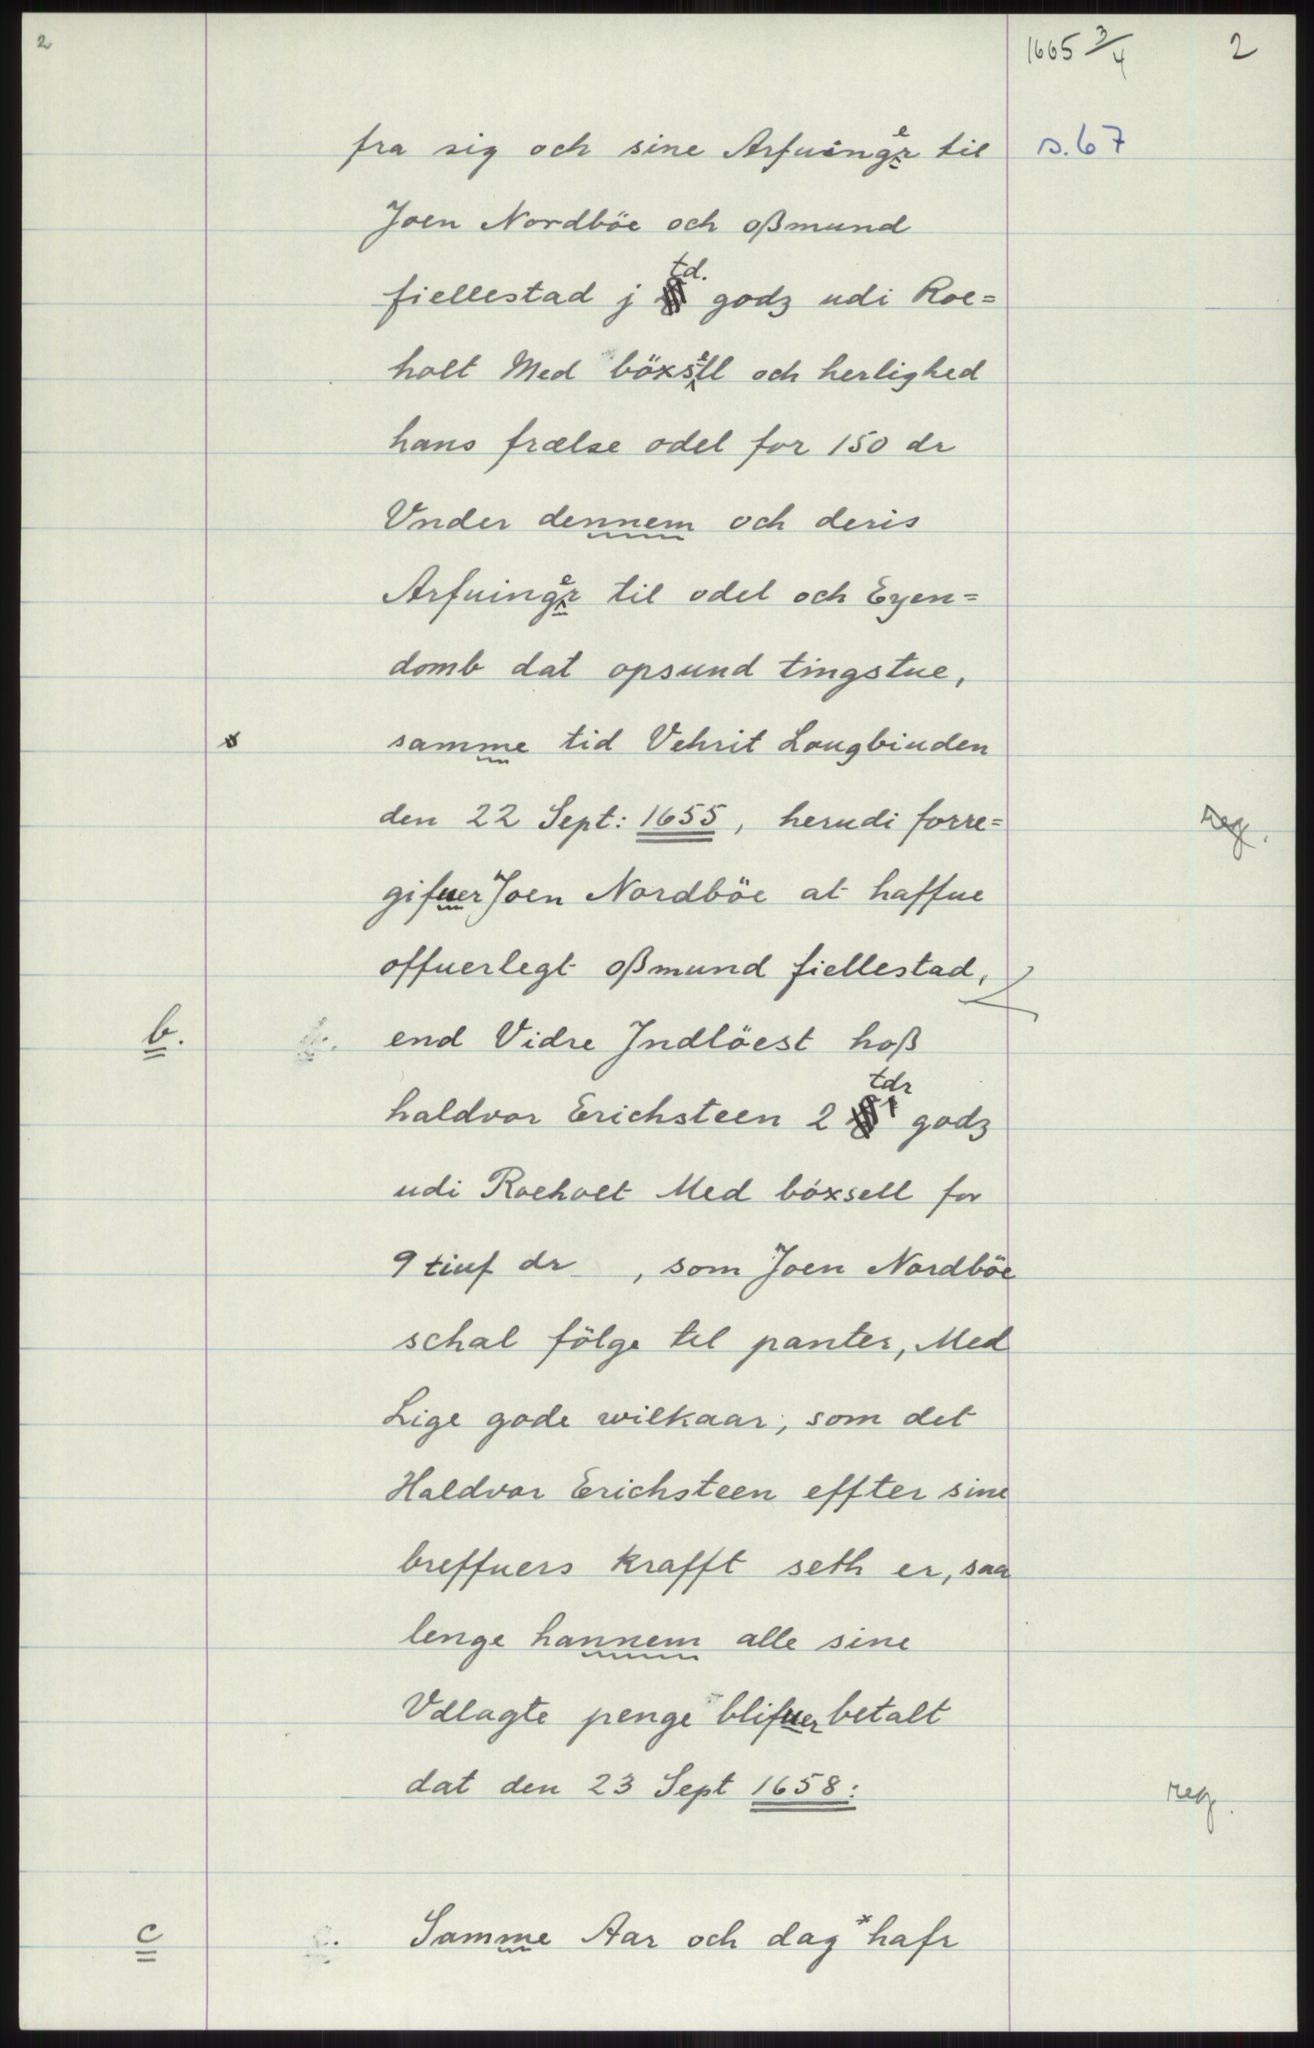 2
1665 3/4
2
fra sig och sine Arfuinger til
s. 67
Joen Nordböe och oßmund
fiellestad j td. godz udi Roe=
holt Med böxsell och herlighed
hans frælse odel for 150 dr
Vnder dennem och deris
Arfuinger til odel och Eyen=
domb dat opsund tingstue,
samme tid Vehrit Lougbiuden
den 22 Sept: 1655, herudi forre=
reg.
gifuer Joen Nordböe at haffue
offuerlegt oßmund fiellestad,
b. end Vidre Jndlöest hoß
haldvor Erichsteen 2 tdr godz
udi Roeholt Med böxsell for
9 tiuf dr , som Joen Nordböe
schal fölge til panter, Med
Lige gode wilkaar, som det
Haldvor Erichsteen effter sine
breffuers krafft seth er, saa
lenge hannem alle sine
Vdlagte penge blifuer betalt
dat den 23 Sept 1658:
reg.
c Samme Aar och dag * hafr